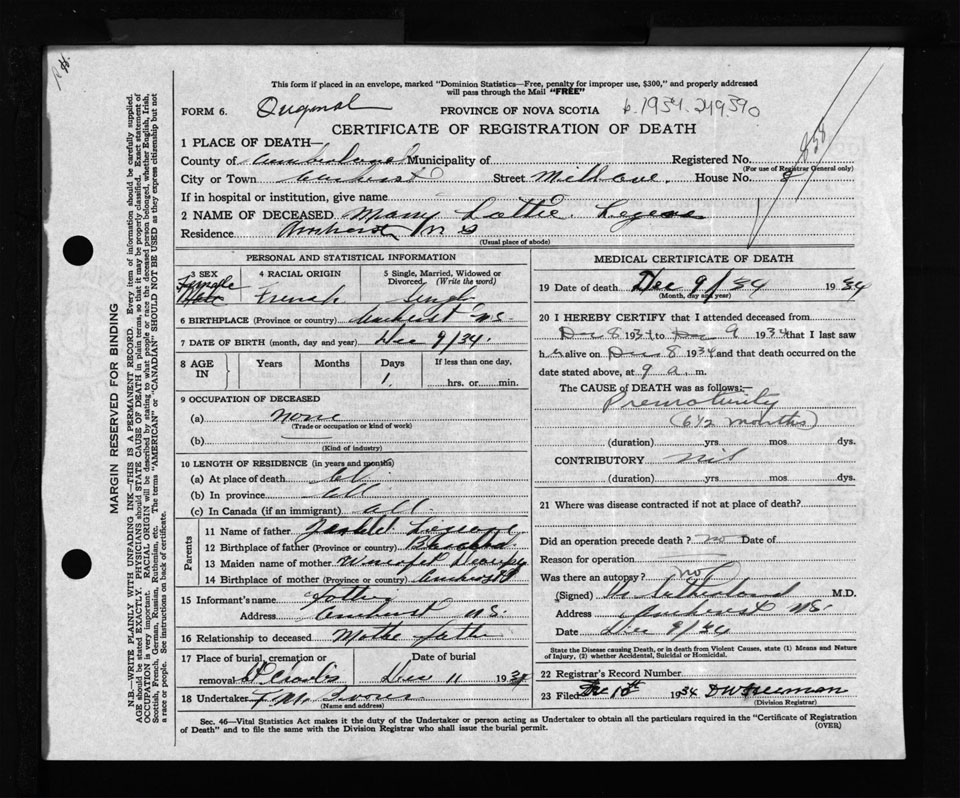 This form if placed in an envelope, marked "Dominion Statistics—Free, penalty for improper use, $300," and properly addressed
will pass through the Mail "FREE"
FORM 6. Original PROVINCE OF NOVA SCOTIA 1934
CERTIFICATE OF REGISTRATION OF DEATH
1 PLACE OF DEATH—
County of Cumberland Municipality of Registered No.
(For use of Registrar General only)
City or Town Amherst Street Mill Ave. House No.
If in hospital or institution, give name
2 NAME OF DECEASED Mary Lottie
Residence Amherst N S
(Usual place of abode)
PERSONAL AND STATISTICAL INFORMATION
3 SEX 4 RACIAL ORIGIN 5 Single, Married, Widowed or Divorced (Write the word)
Female French Single
6 BIRTHPLACE (Province or country) Amherst N.S.
7 DATE OF BIRTH (month, day and year) Dec 9/34.
8 AGE IN Years Months Days If less than one day,
1 hrs. or min.
9 OCCUPATION OF DECEASED
(a) none
(Trade or occupation or kind of work)
(b)
(Kind of industry)
10 LENGTH OF RESIDENCE (in years and months)
(a) At place of death all
(b) In province all
(c) In Canada (if an immigrant) all
Parents
11 Name of father
12 Birthplace of father (Province or country)
13 Maiden name of mother
14 Birthplace of mother (Province or country) Amherst
15 Informant's name
Address Amherst N.S.
16 Relationship to deceased
17 Place of burial, cremation or Date of burial
removal St Charles Dec 11 1934
18 Undertaker
(Name and address)
MEDICAL CERTIFICATE OF DEATH
19 Date of death Dec 9/34 1934
(Month, day and year)
20 I HEREBY CERTIFY that I attended deceased from
Dec 8 1934 to Dec 9 1934 that I last saw
h er alive on Dec 8 1934 and that death occurred on the
date stated above, at 9 a. m.
The CAUSE of DEATH was as follows:—
Prematurity
(6 1/2 months)
(duration) yrs mos dys.
CONTRIBUTORY nil
(duration) yrs mos dys.
21 Where was disease contracted if not at place of death?
Did an operation precede death? no Date of
Reason for operation
Was there an autopsy? no
(Signed) M.D.
Address Amherst N.S.
Date Dec 9/34
State the Disease causing Death, or in death from Violent Causes, state (1) Means and Nature
of Injury, (2) whether Accidental, Suicidal or Homicidal.
22 Registrar's Record Number
23 Filed Dec 10th 1934 D W Freeman
(Division Registrar)
Sec. 46—Vital Statistics Act makes it the duty of the Undertaker or person acting as Undertaker to obtain all the particulars required in the "Certificate of Registration
of Death" and to file the same with the Division Registrar who shall issue the burial permit.
(OVER)
MARGIN RESERVED FOR BINDING
N.B.—WRITE PLAINLY WITH UNFADING INK—THIS IS A PERMANENT RECORD. Every item of information should be carefully supplied.
AGE should be stated EXACTLY. PHYSICIANS should STATE CAUSE OF DEATH in plain terms, so that it may be properly classified. Exact statement of
OCCUPATION is very important. RACIAL ORIGIN will be described by stating to what people or race the deceased person belonged, whether English, Irish,
Scottish, French, German, Russian, Ruthenian, etc. The terms "AMERICAN" or "CANADIAN" SHOULD NOT BE USED as they express citizenship but not
a race or people. See instructions on back of certificate.